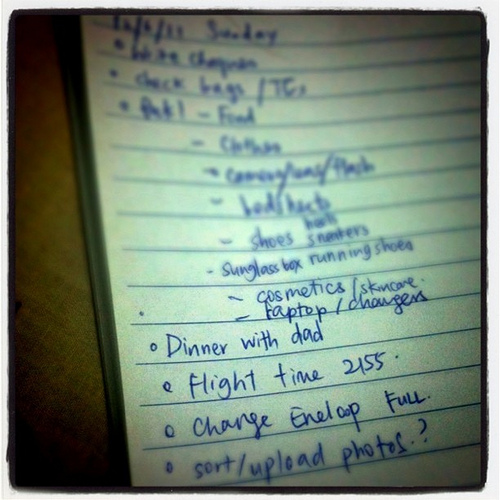 Sunday
• Write cheques
• Check bags /
• Pack! - Food
- Clothes
- camera/lens/flash
- bedsheets
heels
- shoes sneakers
- sunglass box running shoes
- cosmetics / skincare.
- Laptop / chargers
• Dinner with dad
• Flight time 2155.
• Change Eneloop FULL.
• sort/upload photos.?